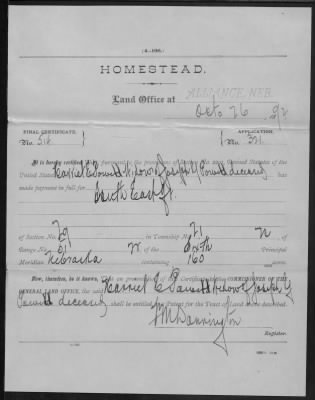 (4-196.)
HOMESTEAD.
Land Office at ALLIANCE, NEB.
Oct. 26 92
FINAL CERTIFICATE. APPLICATION.
No. 516 No.
It is hereby certified That, pursuant to the provisions of Section No. 2291, Revised Statutes of the
United States, Harriet E Powell Widow of Joseph Y Powell deceased
has made payment in full for South East Qr.
of Section No. 29 in Township No. 21 N
Range No. 51 W of the Sixth Principal
Meridian Nebraska containing 160 acres.
Now, therefore, be it known, That on presentation of this Certificate to the COMMISSIONER OF THE
GENERAL LAND OFFICE, the said Harriet E Powell Widow of Joseph Y
Powell deceased shall be entitled to a Patent for the Tract of Land above described.
Register.